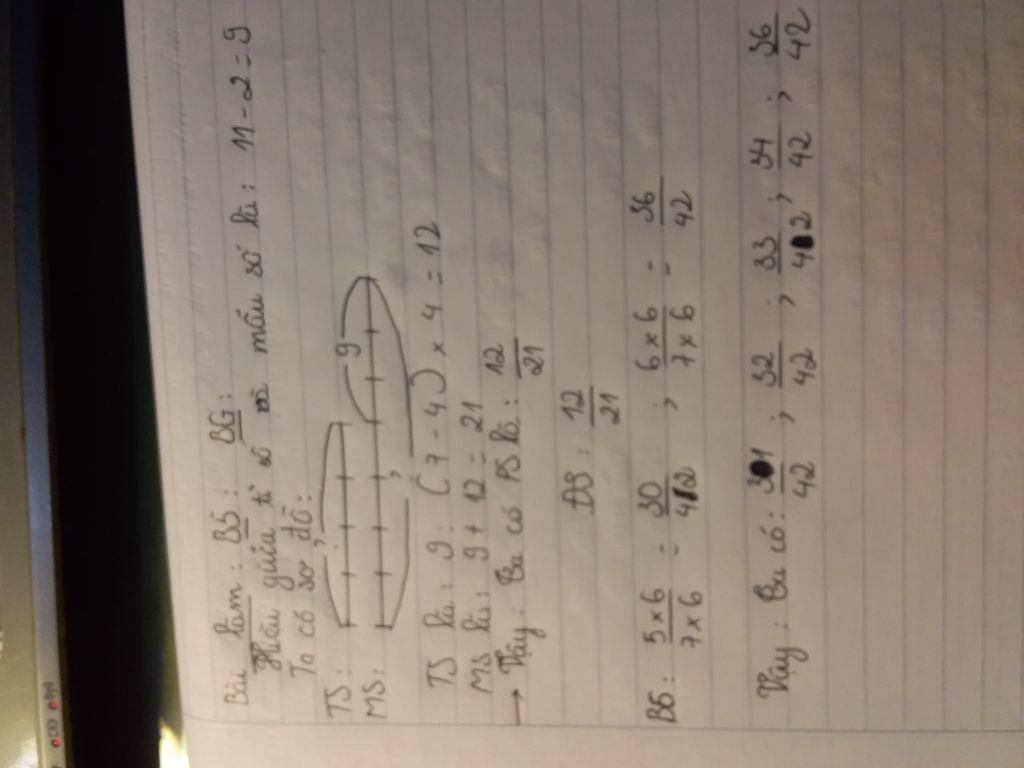 Bài làm: B5: BG:
Hiệu giữa tử số và mẫu số là: 11 - 2 = 9
Ta có sơ đồ:
TS:
9
MS:
TS là: 9: (7 - 4) x 4 = 12
MS là: 9 + 12 = 21
→ Vậy: Ta có PS là: 12/21
ĐS: 12/21
B6: 5x6/7x6 = 30/42 ; 6x6/7x6 = 36/42
Vậy: Ta có: 31/42 ; 32/42 ; 33/42 ; 34/42 ; 36/42